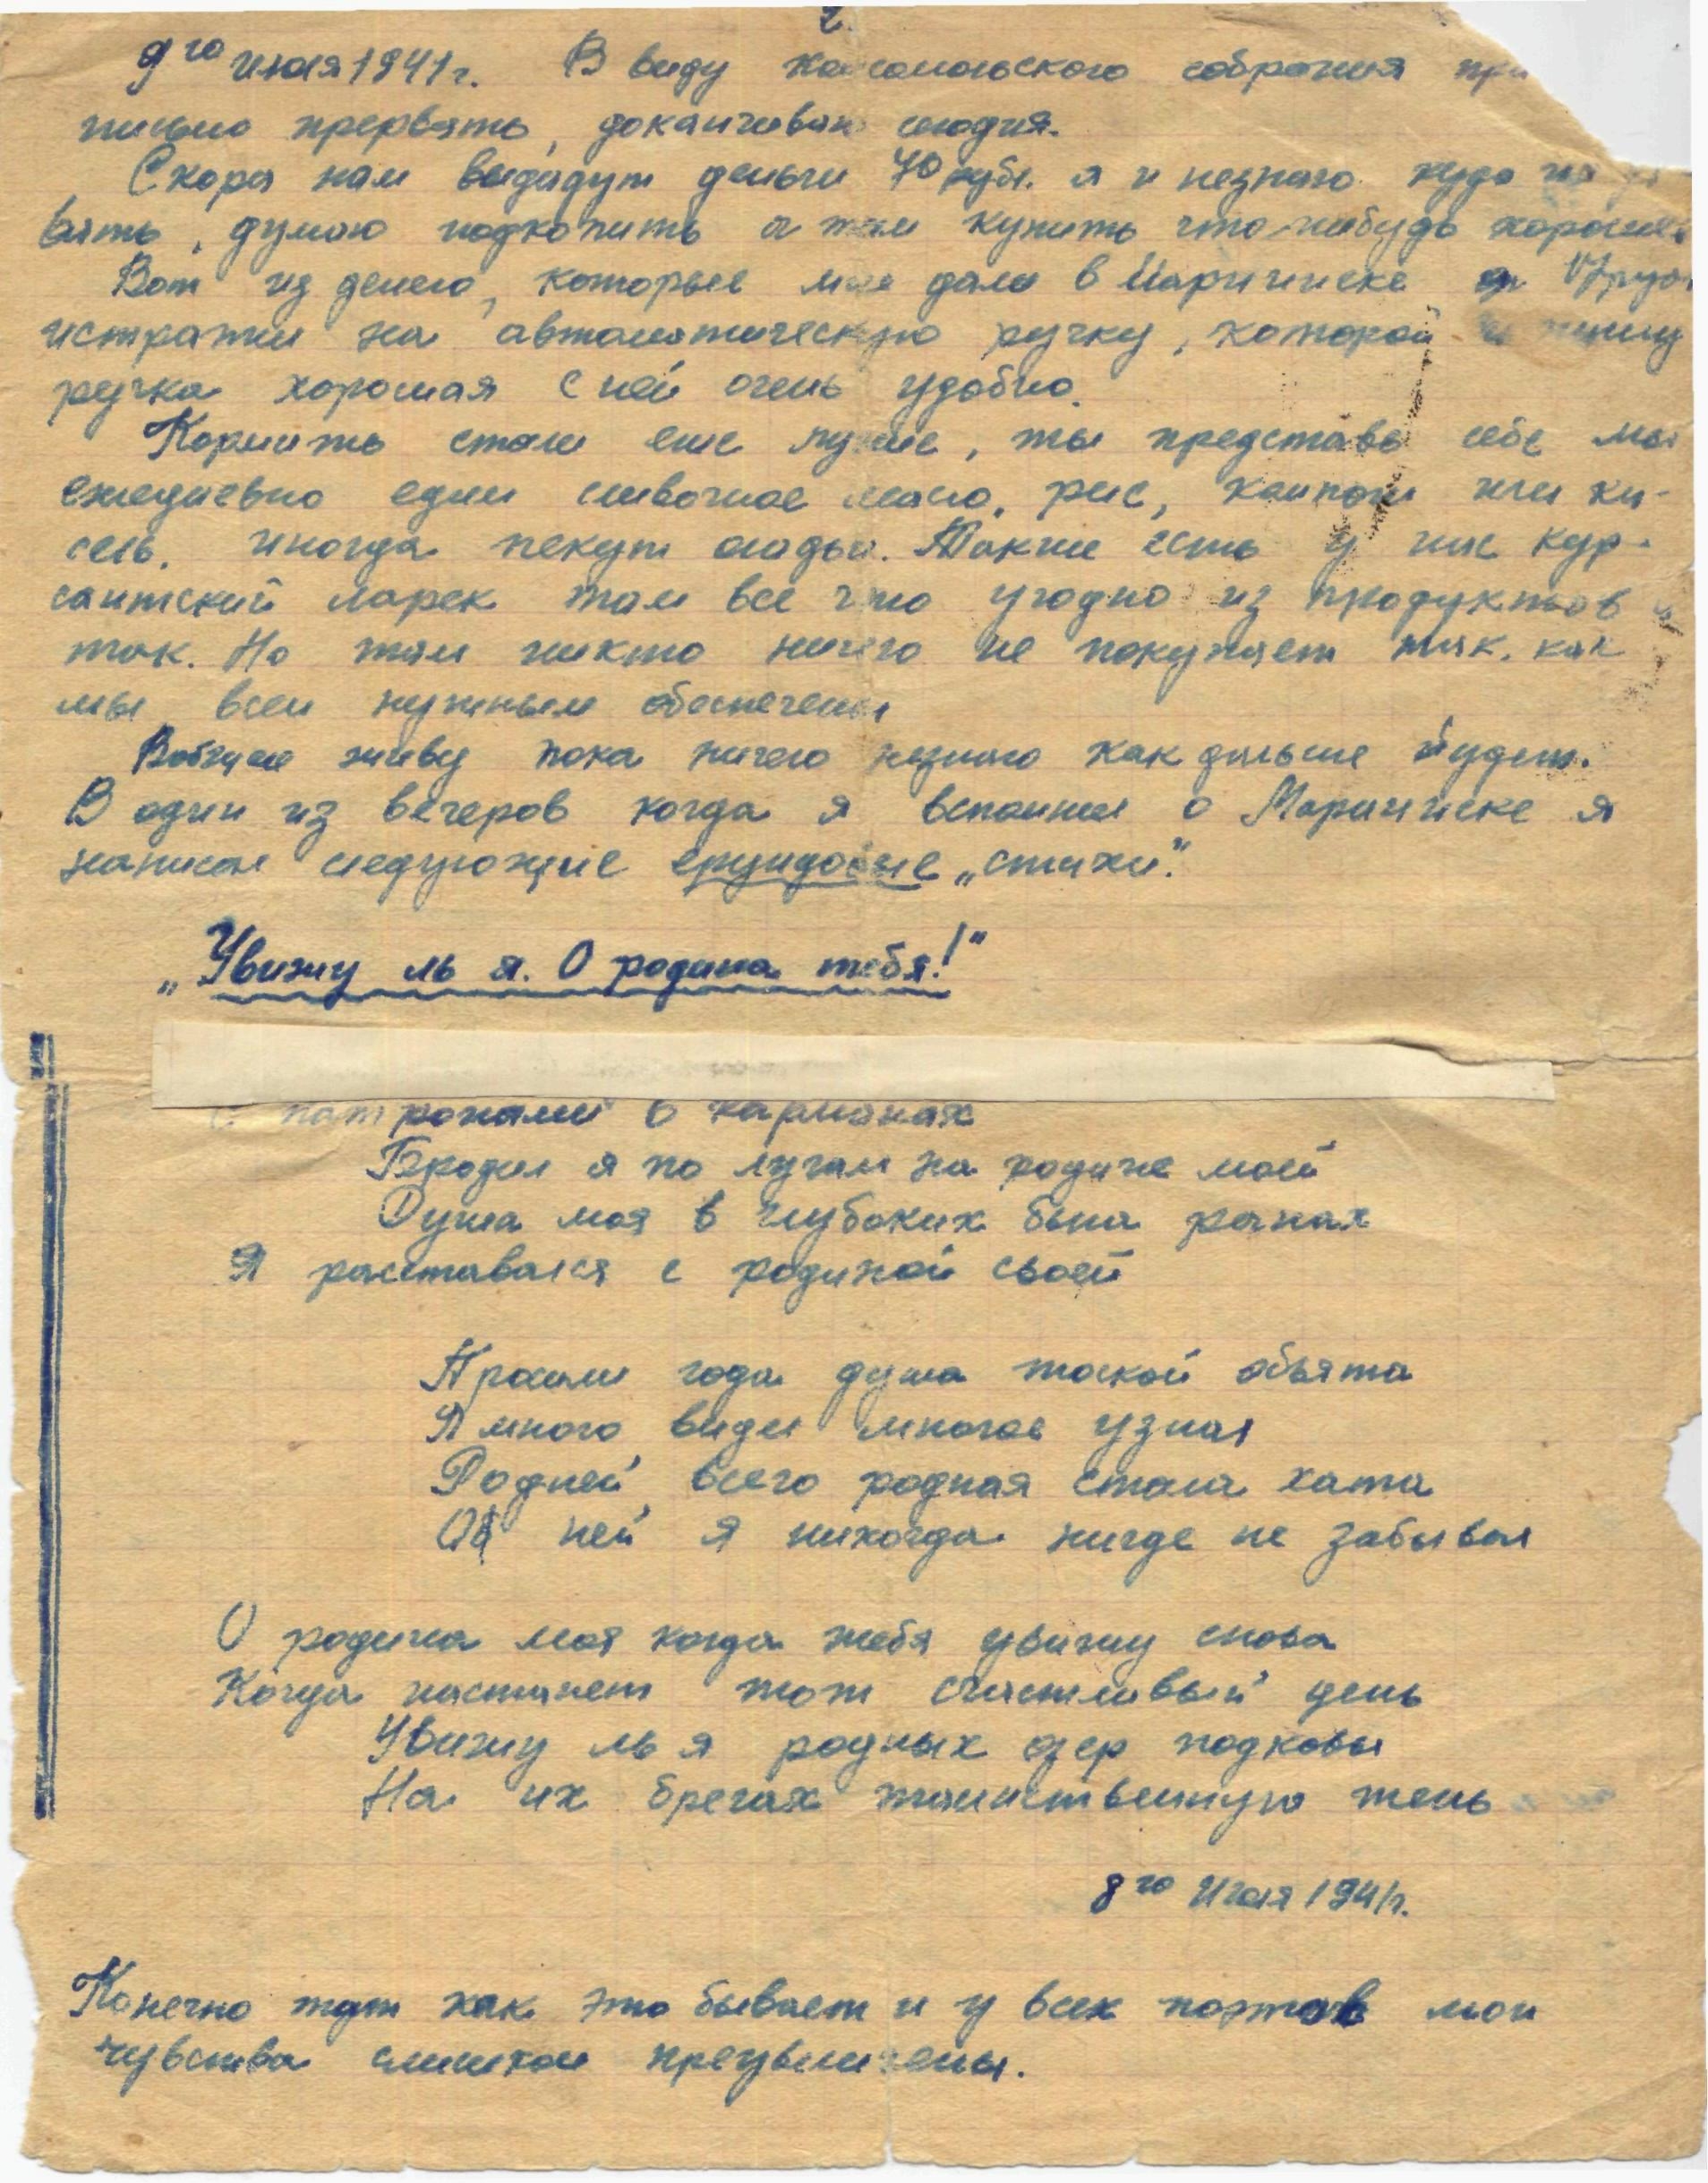 2.
9го июля 1941 г. В виду комсомольского собрания
письмо прервать, доканчиваю сегодня.
Скора нам выдадут деньги 40 рубл. я и незнаю куда их
вать, думаю подкопить а там купить что нибудь хорошее
Вот из денег, которые мне дали в Мариинске я 17 руб
истратил на автоматическую ручку, которой и пишу
ручка хорошая с ней очень удобно.
Кормить стали еще лучше, ты представь себе мы
ежедневно едим сливочное масло, рис, компот или ки-
сель, иногда пекут оладьи. Также есть у нас кур-
сантский ларек там все что угодно из продуктов и
так. Но там никто ничего не покупает так. как
мы всем нужным обеспечены
Вобщем живу пока ничего незнаю как дальше будет.
В один из вечеров когда я вспомнил о Мариинске я
написал следующие ерундовые „стихи".
„Увижу ль я. О родина тебя!"
С патронами в карманах
Бродил я по лугам на родине моей
Душа моя в глубоких была ранах
Я расставался с родиной своей
Прошли года душа тоской объята
Я много видел многое узнал
Родней всего родная стала хата
Об ней я никогда нигде не забывал
О родина моя когда тебя увижу снова
Когда настанет тот счастливый день
Увижу ль я родных озер подковы
На их брегах таинственную тень
8го Июля 1941 г.
Конечно тут как это бывает и у всех поэтов мои
чувства слишком преувеличены.